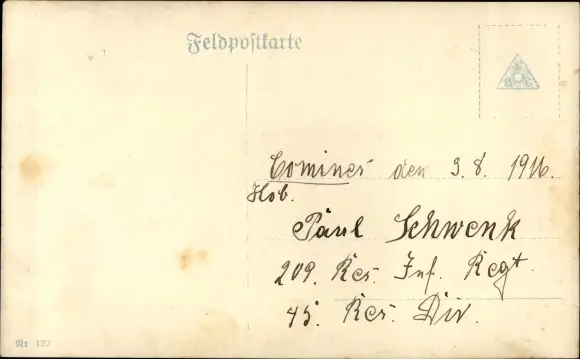 Feldpostkarte
Comines den 3.8.1916.
Hob.
Paul Schwenk
209. Res. Inf. Regt.
45. Res. Div.
Nr 122